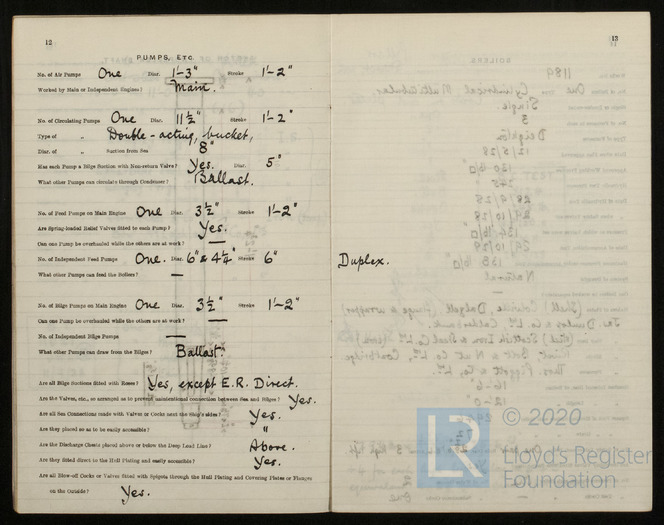 12
PUMPS, ETC.
No. of Air Pumps One Diar. 1'-3" Stroke 1'-2"
Worked by Main or Independent Engines? Main.
No. of Circulating Pumps One Diar. 11½" Stroke 1'-2"
Type of " Double-acting, bucket,
Diar. of " Suction from Sea 8"
Has each Pump a Bilge Suction with Non-return Valve? Yes. Diar. 5"
What other Pumps can circulate through Condenser? Ballast.
No. of Feed Pumps on Main Engine One Diar. 3½" Stroke 1'-2"
Are Spring-loaded Relief Valves fitted to each Pump? Yes.
Can one Pump be overhauled while the others are at work? —
No. of Independent Feed Pumps One. Diar. 6" & 4¼" Stroke 6"
What other Pumps can feed the Boilers? —
No. of Bilge Pumps on Main Engine One Diar. 3½" Stroke 1'-2"
Can one Pump be overhauled while the others are at work? —
No. of Independent Bilge Pumps —
What other Pumps can draw from the Bilges? Ballast.
Are all Bilge Suctions fitted with Roses? Yes, except E.R. Direct.
Are the Valves, etc., so arranged as to prevent unintentional connection between Sea and Bilges? Yes.
Are all Sea Connections made with Valves or Cocks next the Ship's sides? Yes.
Are they placed so as to be easily accessible? "
Are the Discharge Chests placed above or below the Deep Load Line? Above.
Are they fitted direct to the Hull Plating and easily accessible? Yes.
Are all Blow-off Cocks or Valves fitted with Spigots through the Hull Plating and Covering Plates or Flanges
on the Outside? Yes.
13
Duplex.
LR © 2020
Lloyd's Register
Foundation